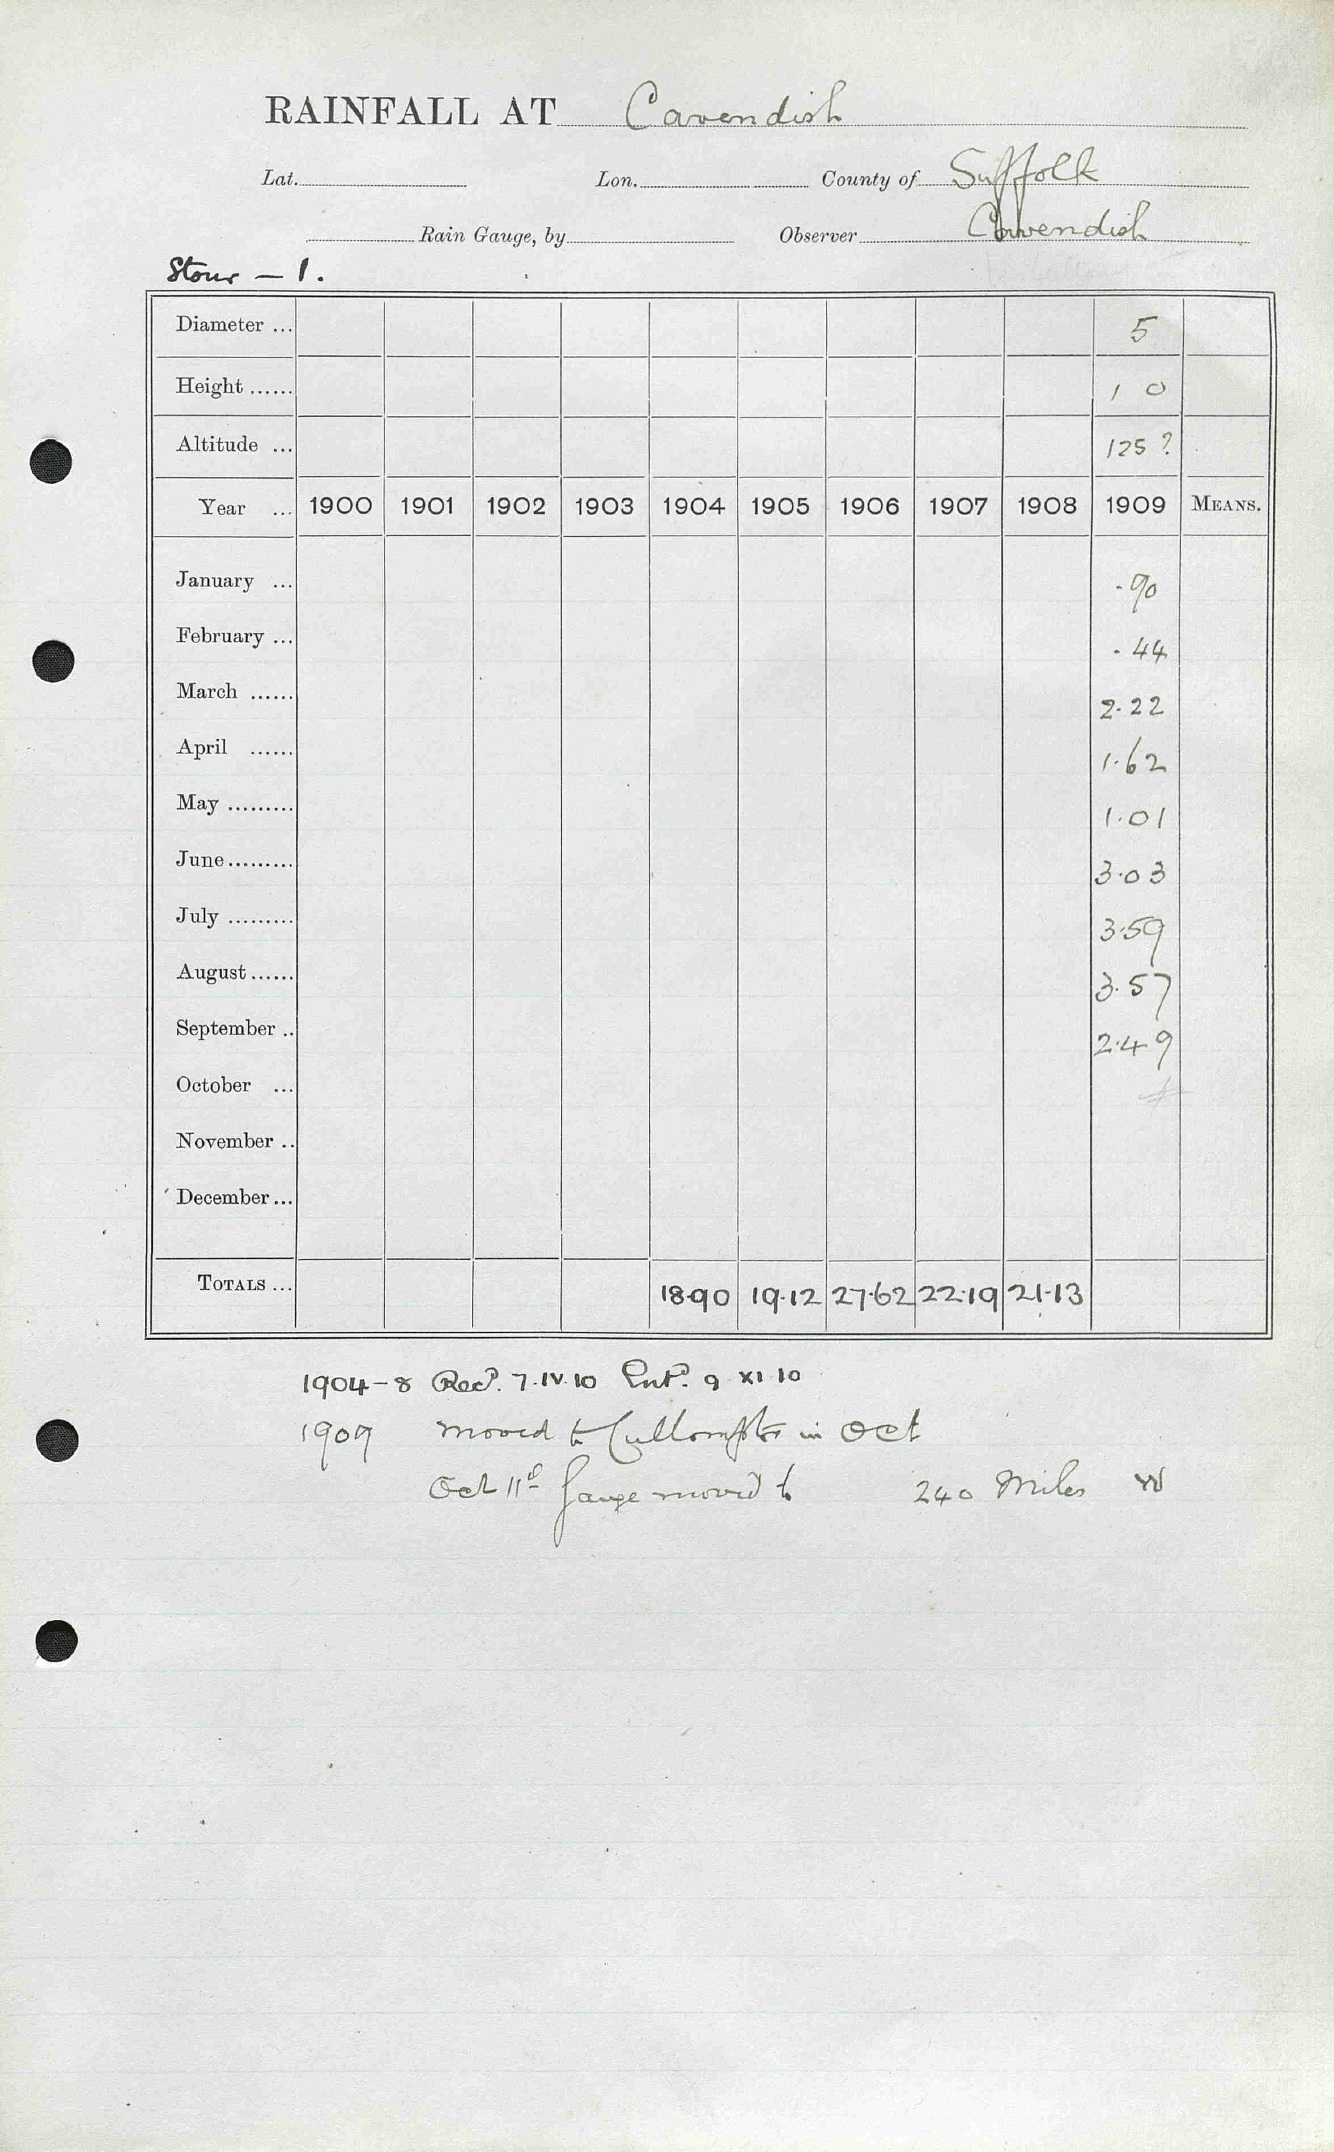 RAINFALL AT Cavendish
Lat. Lon. County of Suffolk
Rain Gauge, by Observer Cavendish
Stour — 1.
Diameter ... 5
Height ...... 1 0
Altitude ... 125 ?
Year ... 1900 1901 1902 1903 1904 1905 1906 1907 1908 1909 MEANS.
January ... .90
February ... .44
March ...... 2.22
April ...... 1.62
May ......... 1.01
June ......... 3.03
July ......... 3.59
August ...... 3.57
September .. 2.49
October ...
November ..
December ...
TOTALS ... 18.90 19.12 27.62 22.19 21.13
1904-8 Recd. 7.IV.10 Entd. 9 XI 10
1909 moved to Cullompton in Oct
Oct 11th gauge moved to 240 Miles W